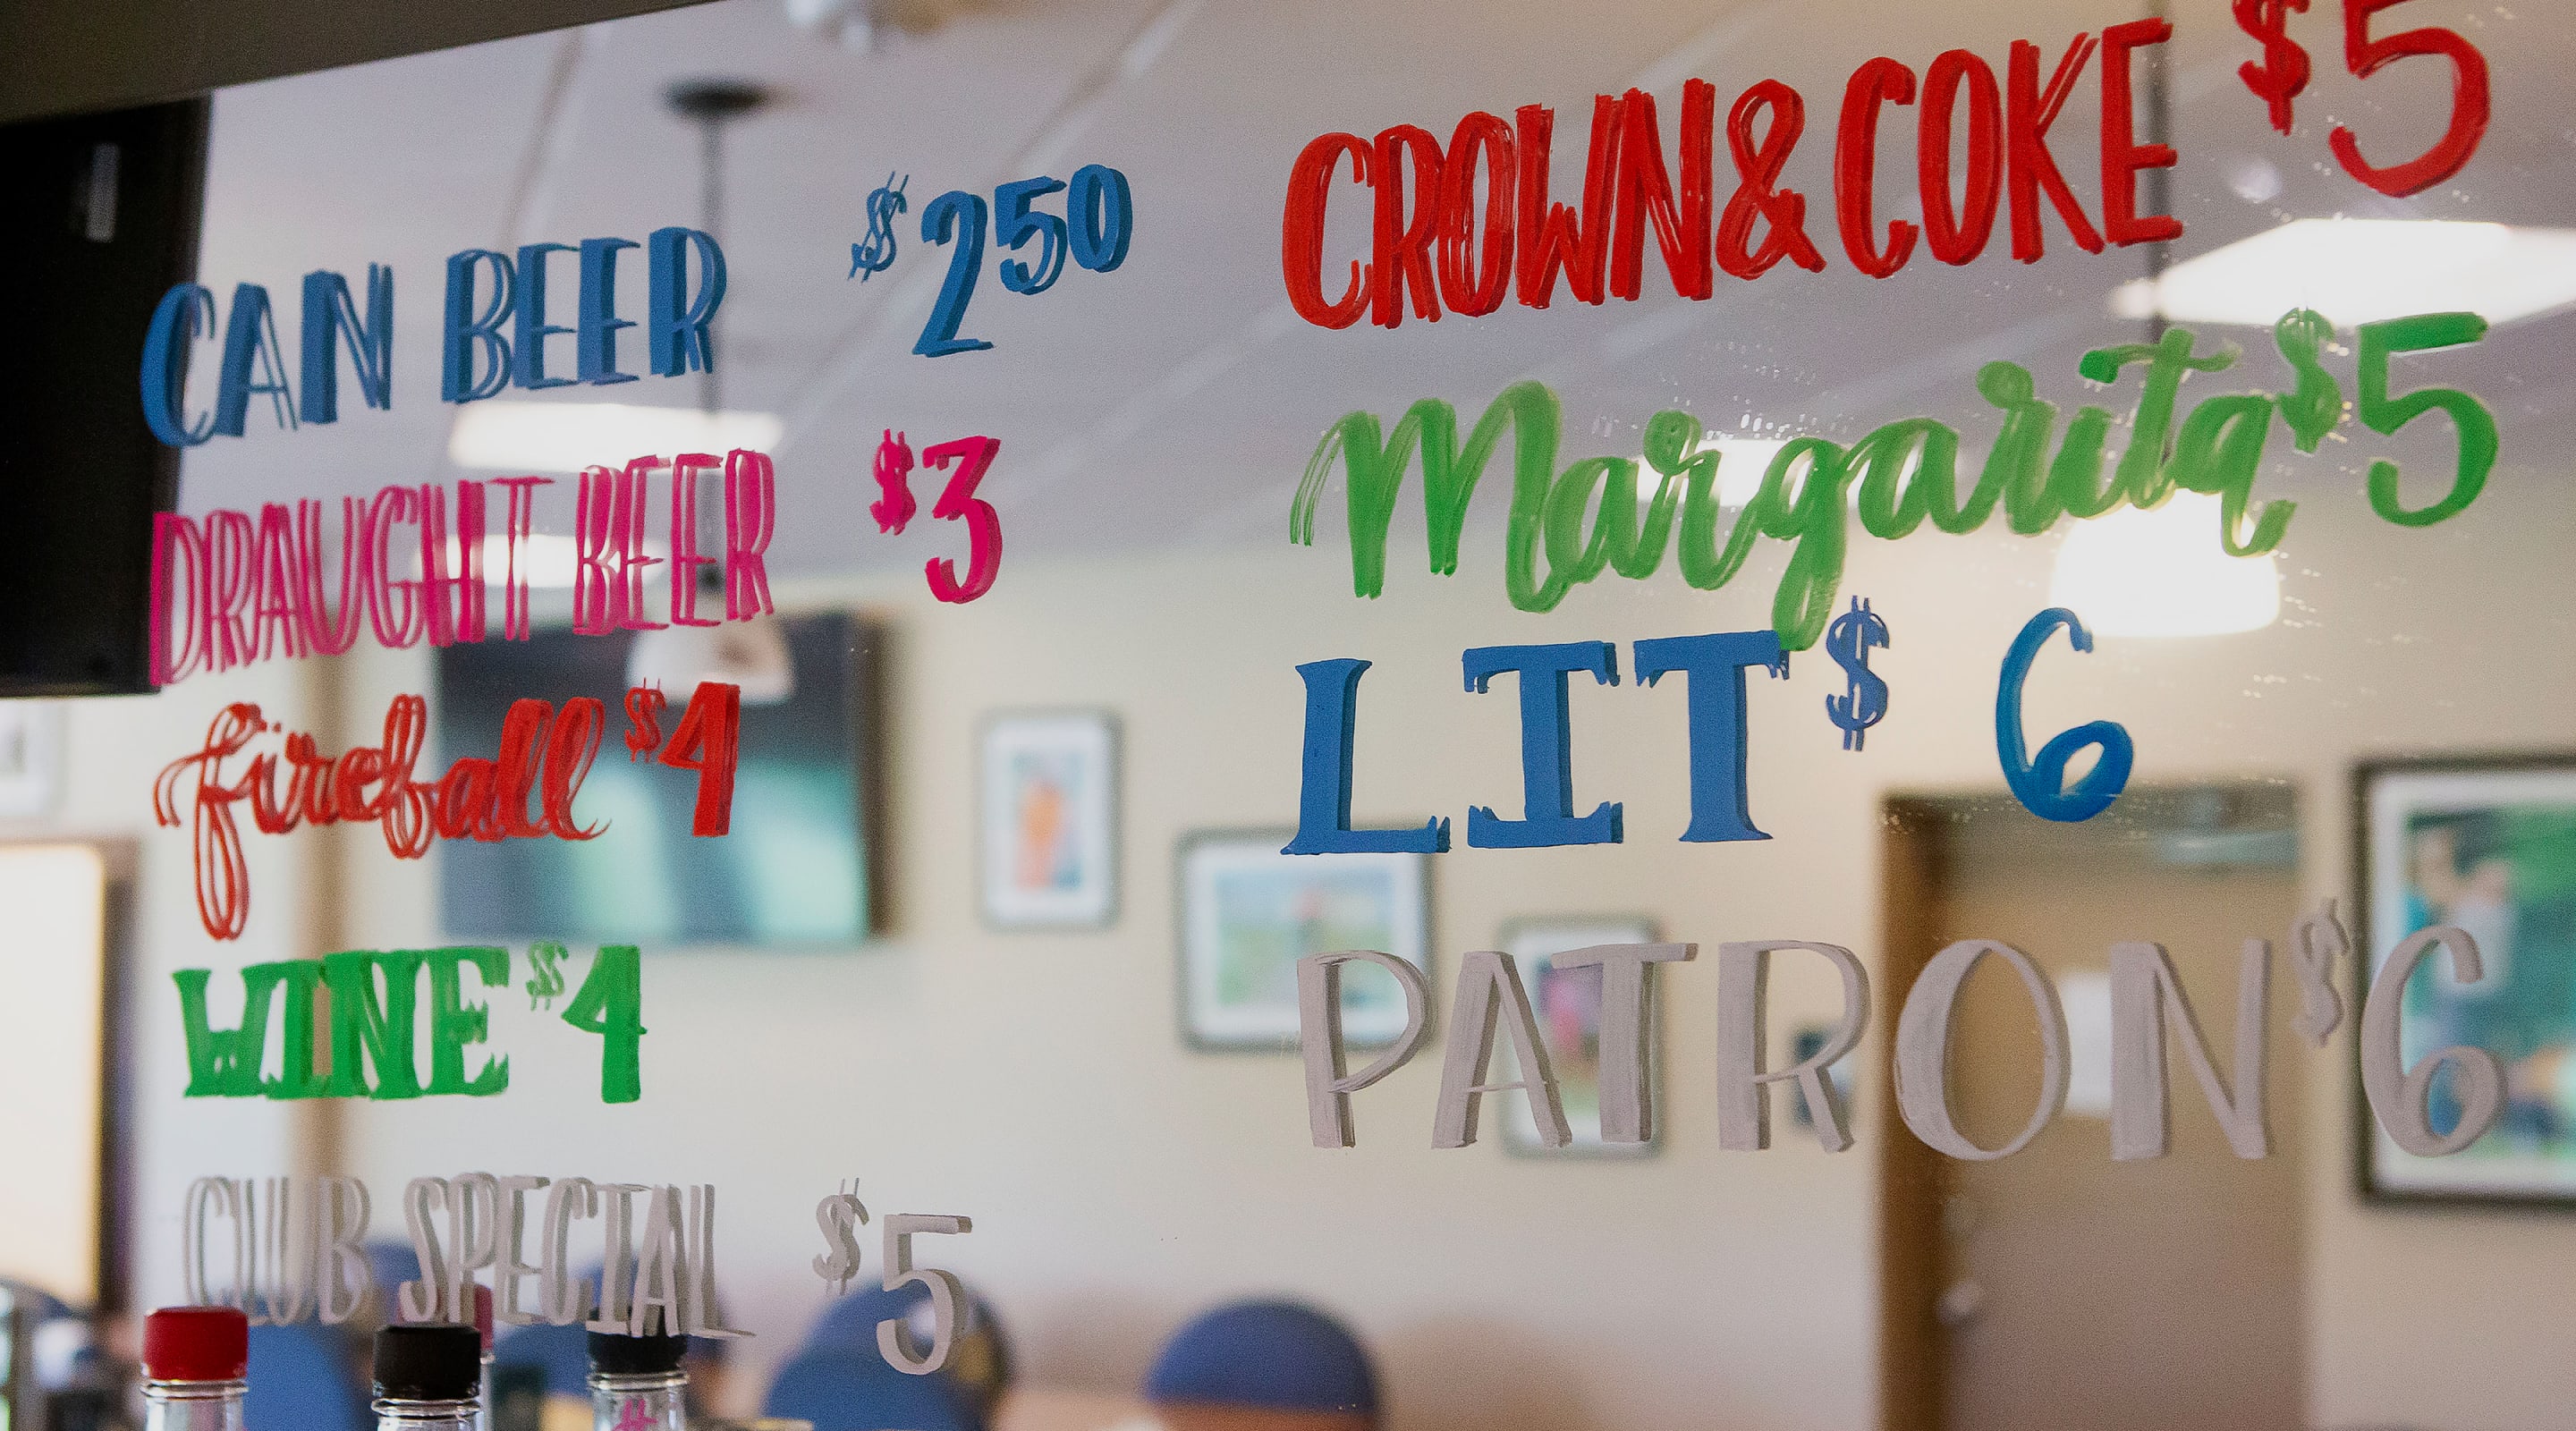 CAN BEER $2.50
DRAUGHT BEER $3
fireball $4
WINE $4
CLUB SPECIAL $5
CROWN & COKE $5
Margarita $5
LIT $6
PATRON $6